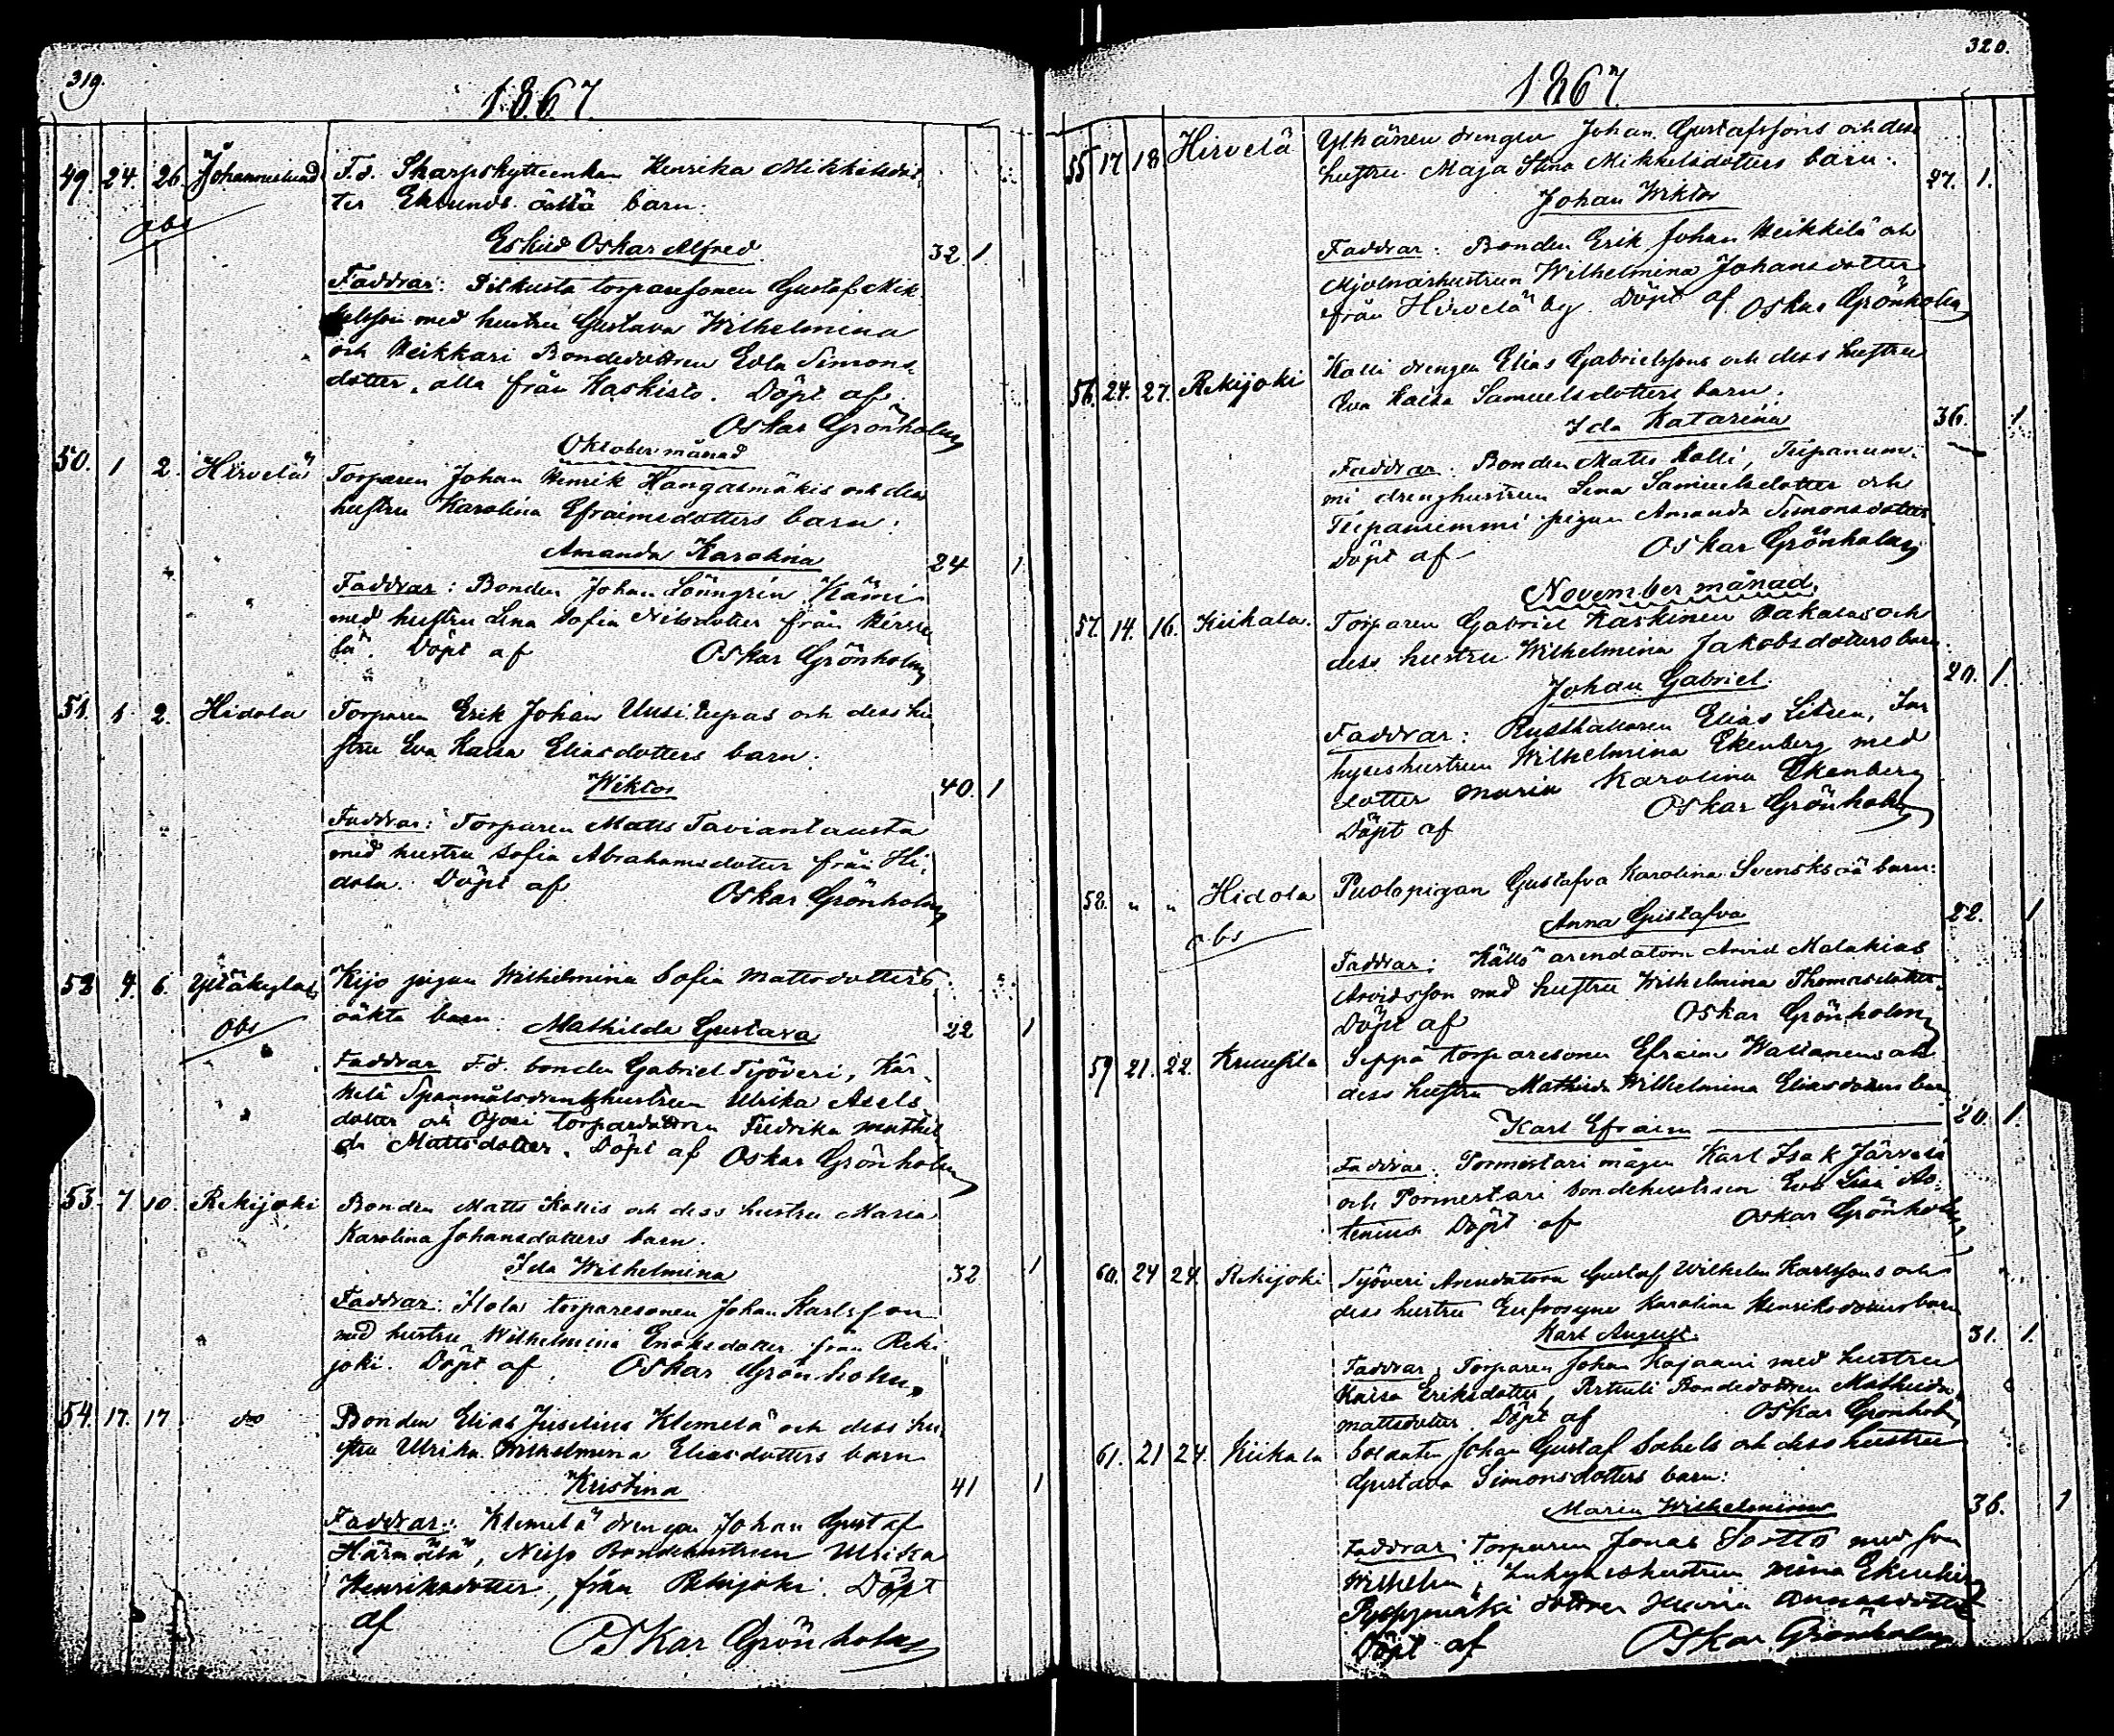 319.
1867.
49. 24. 26 Johanneslund F. d. Skarpskytteenkan Henrika Mikkelsdot-
ters Eklunds oäkta barn.
obs
Eskild Oskar Alfred 32. 1
Faddrar: Pitkusta torparesonen Gustaf Mik-
kelsson med hustru Gustava Wilhelmina
och Heikkari Bondedottren Edla Simons-
dotter, alla från Kaskisto. Döpt af
Oskar Grönholm
Oktober månad
50. 1 2. Hirvelä Torparen Johan Henrik Hangasmäkis och dess
hustru Karolina Efraimsdotters barn.
Amanda Karolina 24 1
Faddrar: Bonden Johan Lönngrén Kämi
med hustru Lena Sofia Nilsdotter från
lä. Döpt af Oskar Grönholm
51. 1 2. Hidola Torparen Erik Johan Uusitupas och dess hu-
stru Eva Kaisa Eliasdotters barn.
Wiktor 40. 1
Faddrar: Torparen Matts Taviantausta
med hustru Sofia Abrahamsdotter från Hi-
dola. Döpt af Oskar Grönholm
52 4. 6. Yltäkylä Kijo pigan Wilhelmina Sofia Mattsdotters
oäkta barn. Mathilda Gustava 22 1
obs
Faddrar F.d. bonden Gabriel Työveri, Kär-
kelä Spanmålsdrenghustrun Ulrika Axels-
dotter och Ojosi torparedottren Fredrika Mathil-
da Mattsdotter. Döpt af Oskar Grönholm
53. 7 10. Rekijoki Bonden Matts Kallis och dess hustru Maria
Karolina Johansdotters barn.
Ida Wilhelmina 32 1
Faddrar: Hola torparesonen Johan Karlsson
med hustru Wilhelmina Enoksdotter från Reki-
joki. Döpt af Oskar Grönholm
54. 17. 17 do Bonden Elias Juselius Klemelä och dess hu-
stru Ulrika Wilhelmina Eliasdotters barn
Kristina 41 1
Faddrar: Klemelä drengen Johan Gustaf
Härmälä, Nisso Bondehustrun Ulrika
Henriksdotter, från Rekijoki. Döpt
af Oskar Grönholm
320.
1867.
55 17 18. Hirvelä Ylhänen drengen Johan Gustafssons och dess
hustru Maja Stina Mikkelsdotters barn. 27. 1.
Johan Wiktor
Faddrar: Bonden Erik Johan Heikkilä och
Mjölnarhustrun Wilhelmina Johansdotter
från Hirvelä by. Döpt af Oskar Grönholm
56. 24. 27. Rekijoki Kalli drengen Elias Gabrielssons och dess hustru
Eva Kaisa Samuelsdotters barn.
Ida Katarina 36. 1
Faddrar: Bonden Matts Kalli, Tiipanum-
mi drenghustrun Lena Samuelsdotter och
Tiipanummi pigan Amanda Simonsdotter
Döpt af Oskar Grönholm
November månad.
57. 14. 16. Kiikala. Torparen Gabriel Kaskinen Pakalas och
dess hustru Wilhelmina Jakobsdotters barn.
Johan Gabriel. 20. 1.
Faddrar: Rusthållaren Elias Litsen, In-
hyseshustrun Wilhelmina Ekenberg med
dotter Maria Karolina Ekenberg
Döpt af Oskar Grönholm
58. " " Hidola Puolapigan Gustafva Karolina Svensks oä barn:
obs
Anna Gustafva 22. 1
Faddrar: Källö arendatorn Arvid Malakias
Arvidsson med hustru Wilhelmina Thomasdotter.
Döpt af Oskar Grönholm
59 21. 22. Kruusila Seppä torparesonen Efraim Wallanens och
dess hustru Mathilda Wilhelmina Eliasdotters barn
Karl Efraim 20. 1.
Faddrar: Pormestari mågen Karl Isak Järvelä
och Pormestari bondehustrun Eva Lisa As-
tenius Döpt af Oskar Grönholm
60. 24 24. Rekijoki Työveri Arendatorn Gustaf Wilhelm Karlssons och
dess hustru Eufrosyne Karolina Henriksdotters barn
Karl August. 31. 1.
Faddrar: Torparen Johan Kajaani med hustru
Kaisa Eriksdotter, Perttuli Bondedottren Mathilda
Mattsdotter. Döpt af Oskar Grönholm
61. 21 24. Kiikala Soldaten Johan Gustaf Sabels och dess hustru
Gustava Simonsdotters barn:
Maria Wilhelmina 36. 1
Faddrar: Torparen Jonas Sortto med son
Wilhelm, Inhyseshustrun Mina Ekenberg
dottren Annasdotter
Döpt af Oskar Grönholm